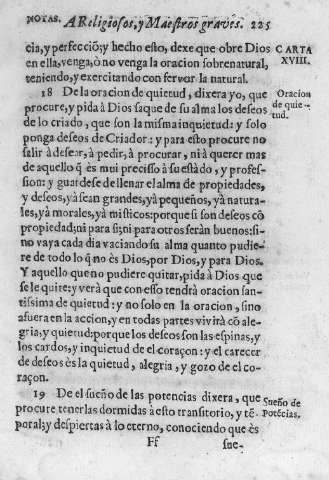 NOTAS. A Religiosos, y Maestros graves. 225
cia, y perfecciõ; y hecho esto, dexe que obre Dios CARTA
en ella, venga, ò no venga la oracion sobrenatural, XVIII.
teniendo, y exercitando con fervor la natural.
18 De la oracion de quietud, dixera yo, que Oracion
procure, y pida à Dios saque de su alma los deseos de quie-
de lo criado, que son la misma inquietud: y solo tud.
ponga deseos de Criador: y para esto procure no
salir à desear, à pedir, à procurar, ni à querer mas
de aquello q̃ ès mui precisso à su estàdo, y profes-
sion: y guardese de llenar el alma de propiedades,
y deseos, yà sean grandes, yà pequeños, yà natura-
les, yà morales, yà misticos: porque si son deseos cõ
propiedad; ni para si; ni para otros seràn buenos: si-
no vaya cada dia vaciando su alma quanto pudie-
re de todo lo q̃ no ès Dios, por Dios, y para Dios.
Y aquello que no pudiere quitar, pida à Dios que
se le quite: y verà que con esso tendrà oracion san-
tissima de quietud: y no solo en la oracion, sino
afuera en la accion, y en todas partes vivirà cõ ale-
gria; y quietud; porque los deseos son las espinas, y
los cardos, y inquietud de el coraçon: y el carecer
de deseos ès la quietud, alegria, y gozo de el co-
raçon.
19 De el sueño de las potencias dixera, que Sueño de
procure tenerlas dormidas à esto transitorio, y tẽ- Potẽcias.
poral; y despiertas à lo eterno, conociendo que ès
Ff sue-